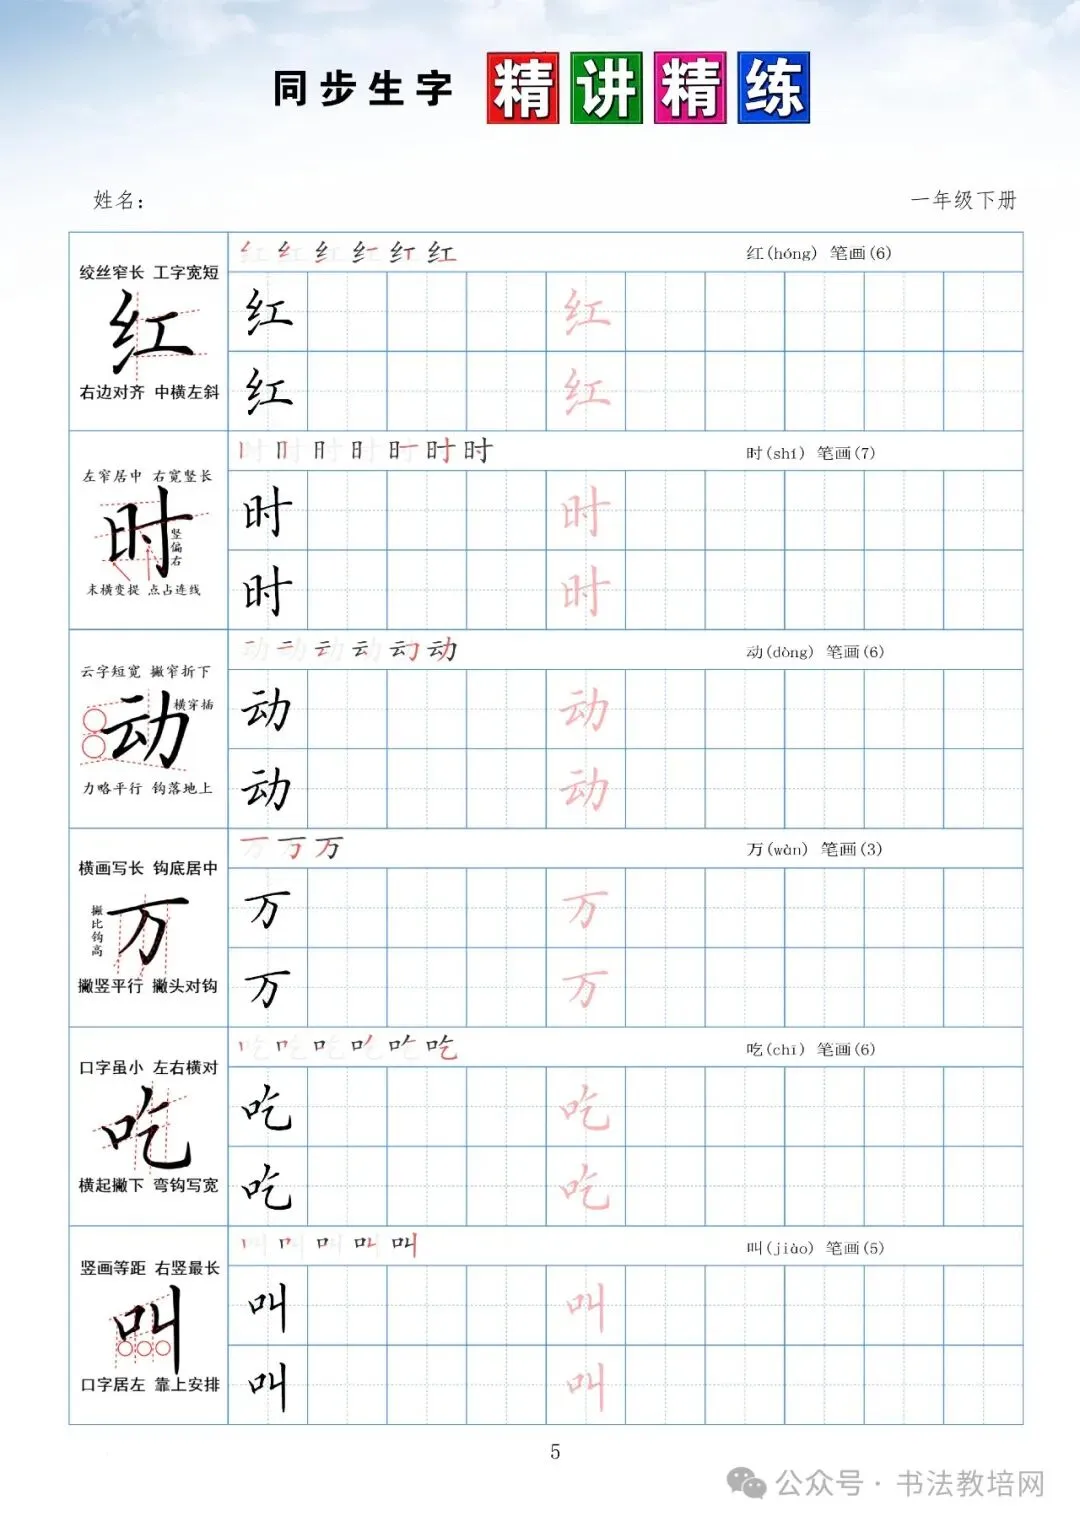 同步生字 精讲精练
姓名： 一年级下册
绞丝窄长 工字宽短
红
右边对齐 中横左斜
红(hóng) 笔画(6)
红 红
红 红
左窄居中 右宽竖长
时
竖偏右
末横变提 点占连线
时(shí) 笔画(7)
时 时
时 时
云字短宽 撇窄折下
横穿插
动
力略平行 钩落地上
动(dòng) 笔画(6)
动 动
动 动
横画写长 钩底居中
撇比钩高
万
撇竖平行 撇头对钩
万(wàn) 笔画(3)
万 万
万 万
口字虽小 左右横对
吃
横起撇下 弯钩写宽
吃(chī) 笔画(6)
吃 吃
吃 吃
竖画等距 右竖最长
叫
口字居左 靠上安排
叫(jiào) 笔画(5)
叫 叫
叫 叫
5
公众号·书法教培网